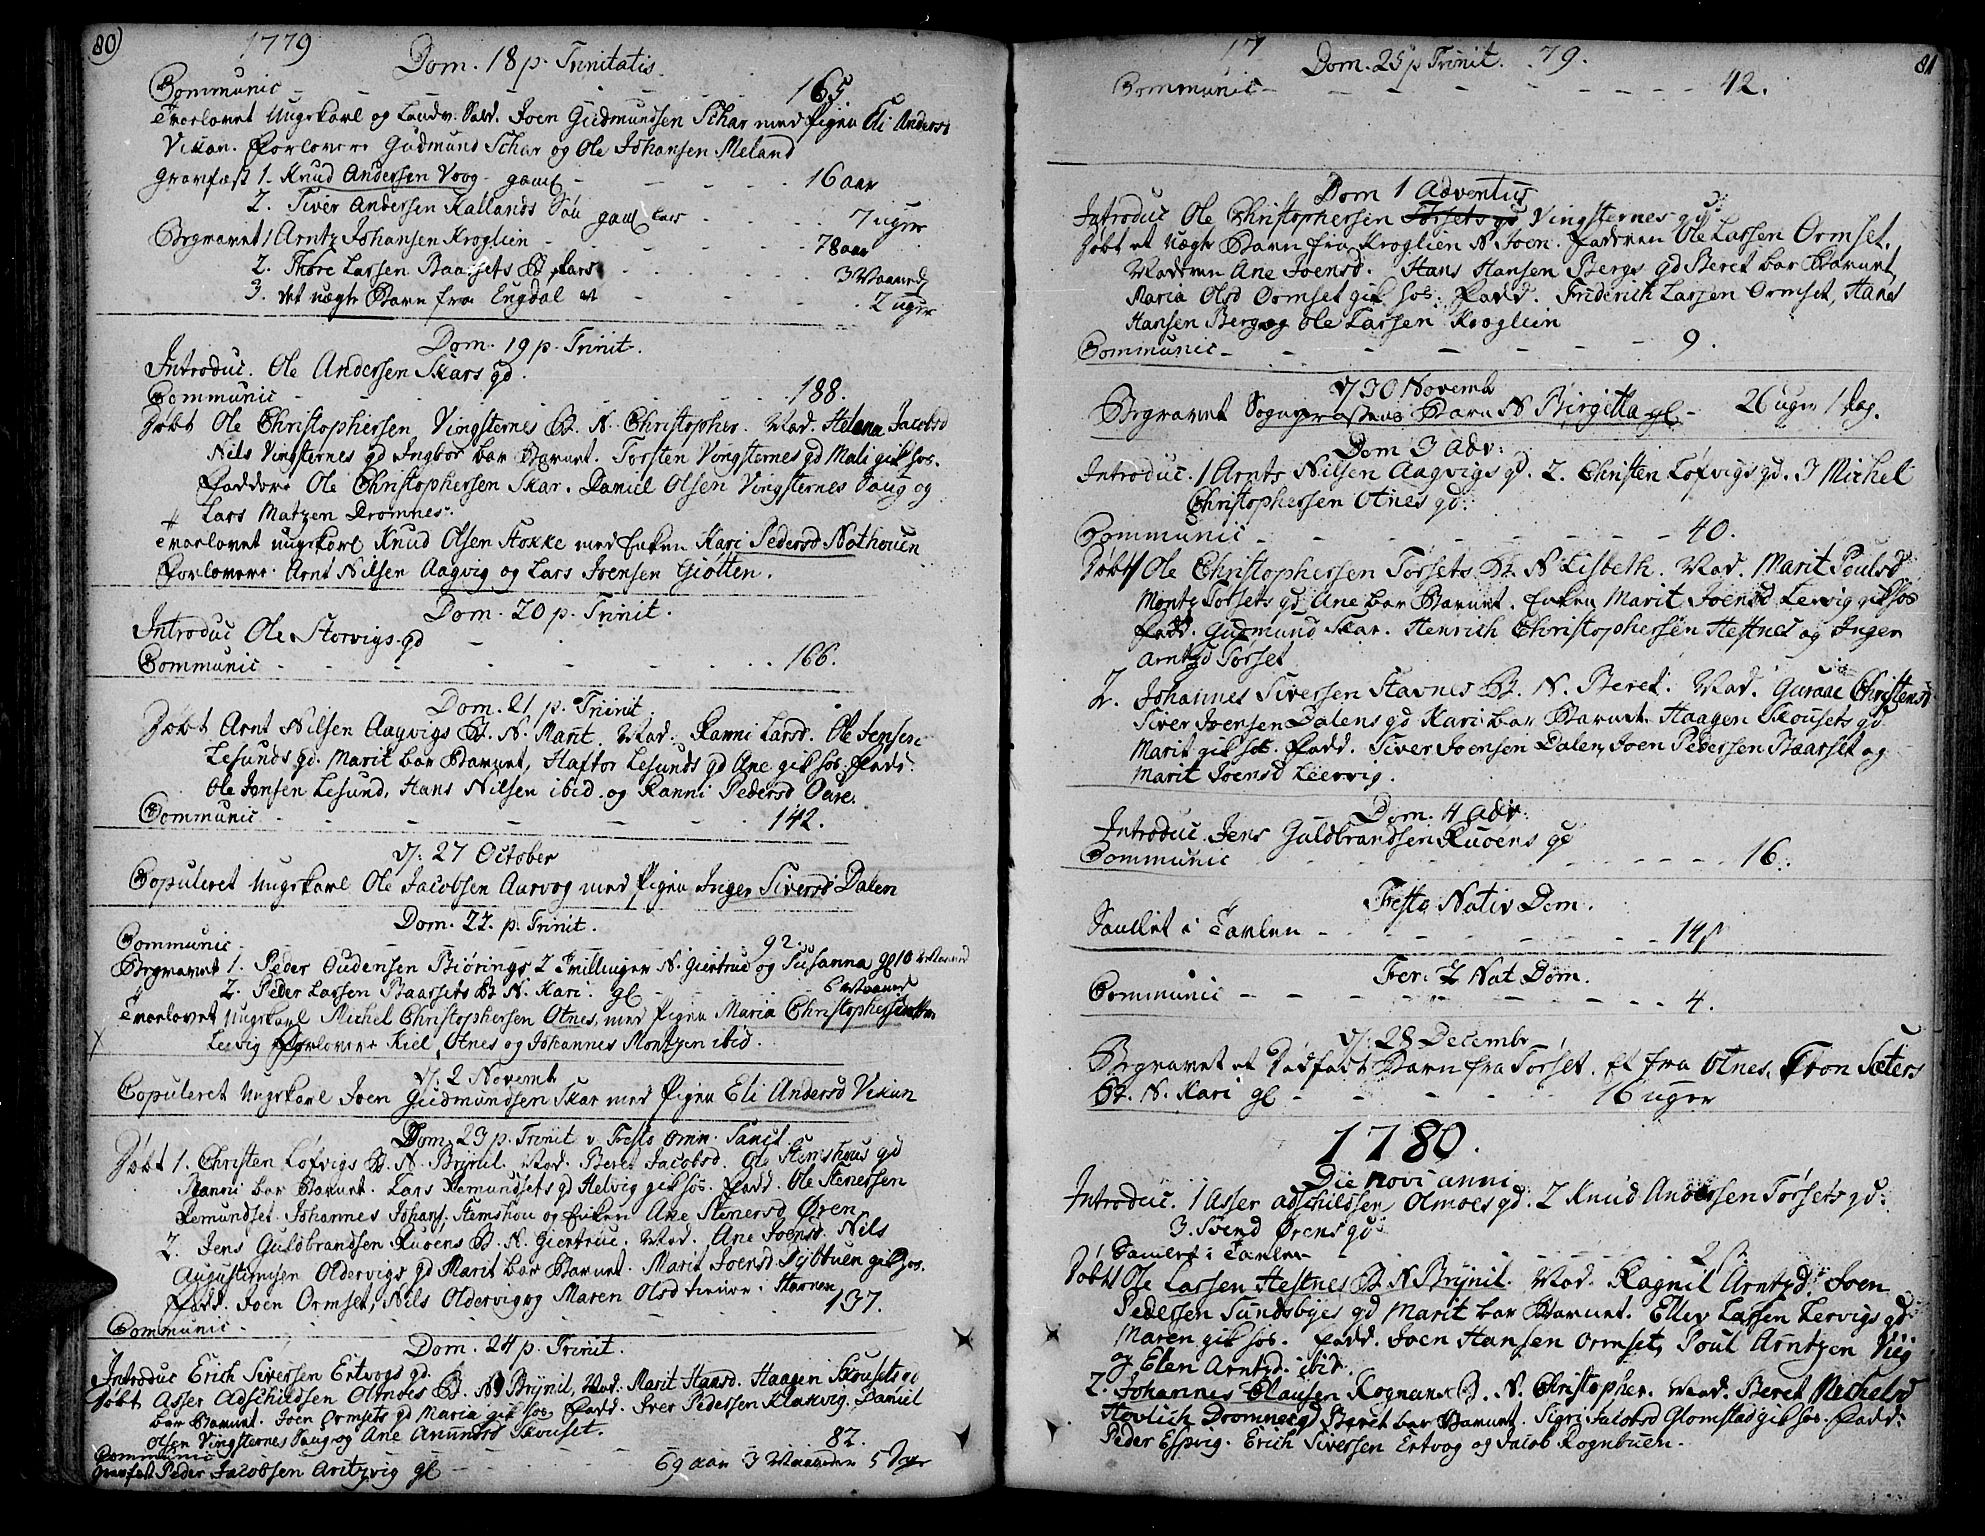 80) 1779
Dom. 18 p. Trinitatis.
Communic - - - 165
Trolovet Ungkarl og Landv. Sold. Joen Gudmundsen Schar med Pigen Eli Andersd
Vikan. Forlovere Gudmund Schar og Ole Johansen Meland
Gravfæst 1. Knud Andersen Vaag gaml - - - 16 aar
2. Siver Andersen Kallands Søn gaml - - 7 uger
Begravet 1 Arntz Johansen Kroglien - - - 78 aar
2. Thore Larssen Baarsets B - - - 3 Maaned
3. det uægte Barn fra Engdal - - - 2 uger
Dom. 19 p. Trinit.
Introduc. Ole Andersen Skars gd.
Communic - - - 188.
Døbt Ole Christophersen Vingsternes B. N. Christopher. Mod. Helena Jacobsd
Nils Vingsternes gd Ingbor bar Barnet. Torsten Vingsternes gd Mali gik hos.
Faddere Ole Christophersen Skar. Daniel Olsen Vingsternes Saug og
Lars Matzen Dromnes.
Trolovet ungkarl Knud Olsen Stokke med Enken Kari Pedersd Nothouen
Forlovere. Arnt Nilsen Aagvig og Lars Joensen Giøtten.
Dom. 20 p. Trinit.
Introduc Ole Storvigs gd
Communic - - - 166.
Dom. 21 p. Trinit.
Døbt Arnt Nilsen Aagvigs B. N. Marit. Mod. Ranni Larsd. Ole Jensen
Lesunds gd. Marit bar Barnet, Haftor Lesunds gd Ane gik hos. Fadd.
Ole Jensen Lesund, Hans Nilsen ibid. og Ranni Pedersd Oure.
Communic - - - 142.
d. 27 October
Copuleret Ungkarl Ole Jacobsen Aurvog med Pigen Inger Siversd Dalen
Dom. 22. p. Trinit.
Communic - - 92.
Begravet 1. Peder Oudensen Biørings 2 Tvillinger N. Giertrue og Susanna gl 10
2. Peder Larssen Baarsets B N. Kari. gl - - 6
Trolovet Ungkarl Michel Christophersen Otnes, med Pigen Maria Christophersen
Leivig Forlovere Kiel Otnes og Johannes Montzen ibid.
d. 2 Novemb
Copuleret Ungkarl Joen Gudmundsen Skar med Pigen Eli Andersd Vikan
Dom. 23 p. Trinit v. Festo Omn. Sanct
Døbt 1. Christen Løfvigs B. N. Brynil. Mod. Beret Jacobsd. Ole Stemshous gd
Ranni bar Barnet. Lars Remundsets gd Helvig gik hos. Fadd. Ole Stenersen
Remundset. Johannes Johans. Stemshou og Enken Ane Stenersd Øren
2. Jens Guldbrandsen Ruoens B. N. Giertrue. Mod. Ane Joensd. Nils
Augustinusen Oldervigs gd Marit bar Barnet. Marit Joensd Nybtuen gik hos.
Fadd. Joen Ormset, Nils Oldervig og Maren Olsd
Communic - - - 137.
Dom. 24 p. Trinit.
Introduc Erich Siversen Ertvogs gd.
Døbt Asser Adschildsen Olmoes B. N Brynil, Mod. Marit Hansd. Haagen Skousets gd
bar Barnet. Joen Ormsets gd Maria gik hos. Fadd. Iver Pedersen Klakvig. Daniel
Olsen Vingsternes Saug og Ane Amundsd Skouset.
Communic - - - 82.
Gravfæst Peder Jacobsen Aritzvig gl - - 69 aar 3 Maaneder 5 Dage
81
17 Dom. 25 p Trinit. 79.
Communic - - - 42.
Dom 1 Adventus
Introduc Ole Christophersen Torsets gd Vingsternes gd
Døbt et uægte Barn fra Kroglien N Joen. Faderen Ole Larssen Ormset.
Moderen Ane Joensd. Hans Hansen Bergs gd Beret bar Barnet
Maria Olsd Ormset gik hos. Fadd. Friderich Larssen Ormset, Hans
Hansen Berg og Ole Larssen Kroglien
Communic - - - 9.
d. 30 Novemb
Begravet Sognepræstens Barn N Birgitta gl - 26 uger 1 dag.
Dom 3 Adv:
Introduc. 1 Arnt Nilsen Aagvigs gd. 2. Christen Løfvigs gd. 3 Michel
Christophersen Otnes gd:
Communic - - - 40.
Døbt 1 Ole Christophersen Torsets B. N Lisbeth. Mod. Marit Poulsd
Montz Torsets gd Ane bar Barnet. Enken Marit Joensd Leervig gik hos
Fadd. Gudmund Skar. Henrich Christophersen Hestnes og Inger
Arntzd Torset
2. Johannes Siversen Stavnes B. N. Beret. Mod. Guraae Christensd
Siver Joensen Dalens gd Kari bar Barnet. Haagen Skousets gd
Marit gik hos. Fadd. Siver Joensen Dalen, Joen Pedersen Baarset og
Marit Joensd Leervig.
Dom. 4 Adv:
Introduc. Jens Guldbrandsen Ruoens gd
Communic - - - 16.
Festo Nativ Dom.
Samlet i Tavlen - - - 14 ß
Fer. 2 Nat Dom.
Communic - - - 4.
d. 28 Decembr
Begravet et Dødfødt Barn fra Torset. Et fra Otnes. Tron Sæters
B. N. Kari gl - - - 16 uger
1780.
Die novi anni
Introduc. 1 Asser Adschildsen Olmoes gd. 2 Knud Andersen Torsets gd:
3. Svend Ørens gd
Samlet i Tavlen - - - 2 ß
Døbt 1 Ole Larssen Hestnes B N Brynil. Mod. Ragnil Arntzd. Joen
Pedersen Sundsbyes gd Marit bar Barnet. Ellev Larssen Lervigs gd
Maren gik hos. Fadd. Joen Hansen Ormset, Poul Arntzen Viig
og Elen Arntzd. ibid.
2. Johannes Clausen Rognans B. N. Christopher. Mod. Beret Michelsd
Hovlich Dromnes gd Beret bar Barnet. Sigri Jacobsd Glomstad gik hos. Fadd:
Peder Espvig. Erich Siversen Ertvog og Jacob Rognbuen.